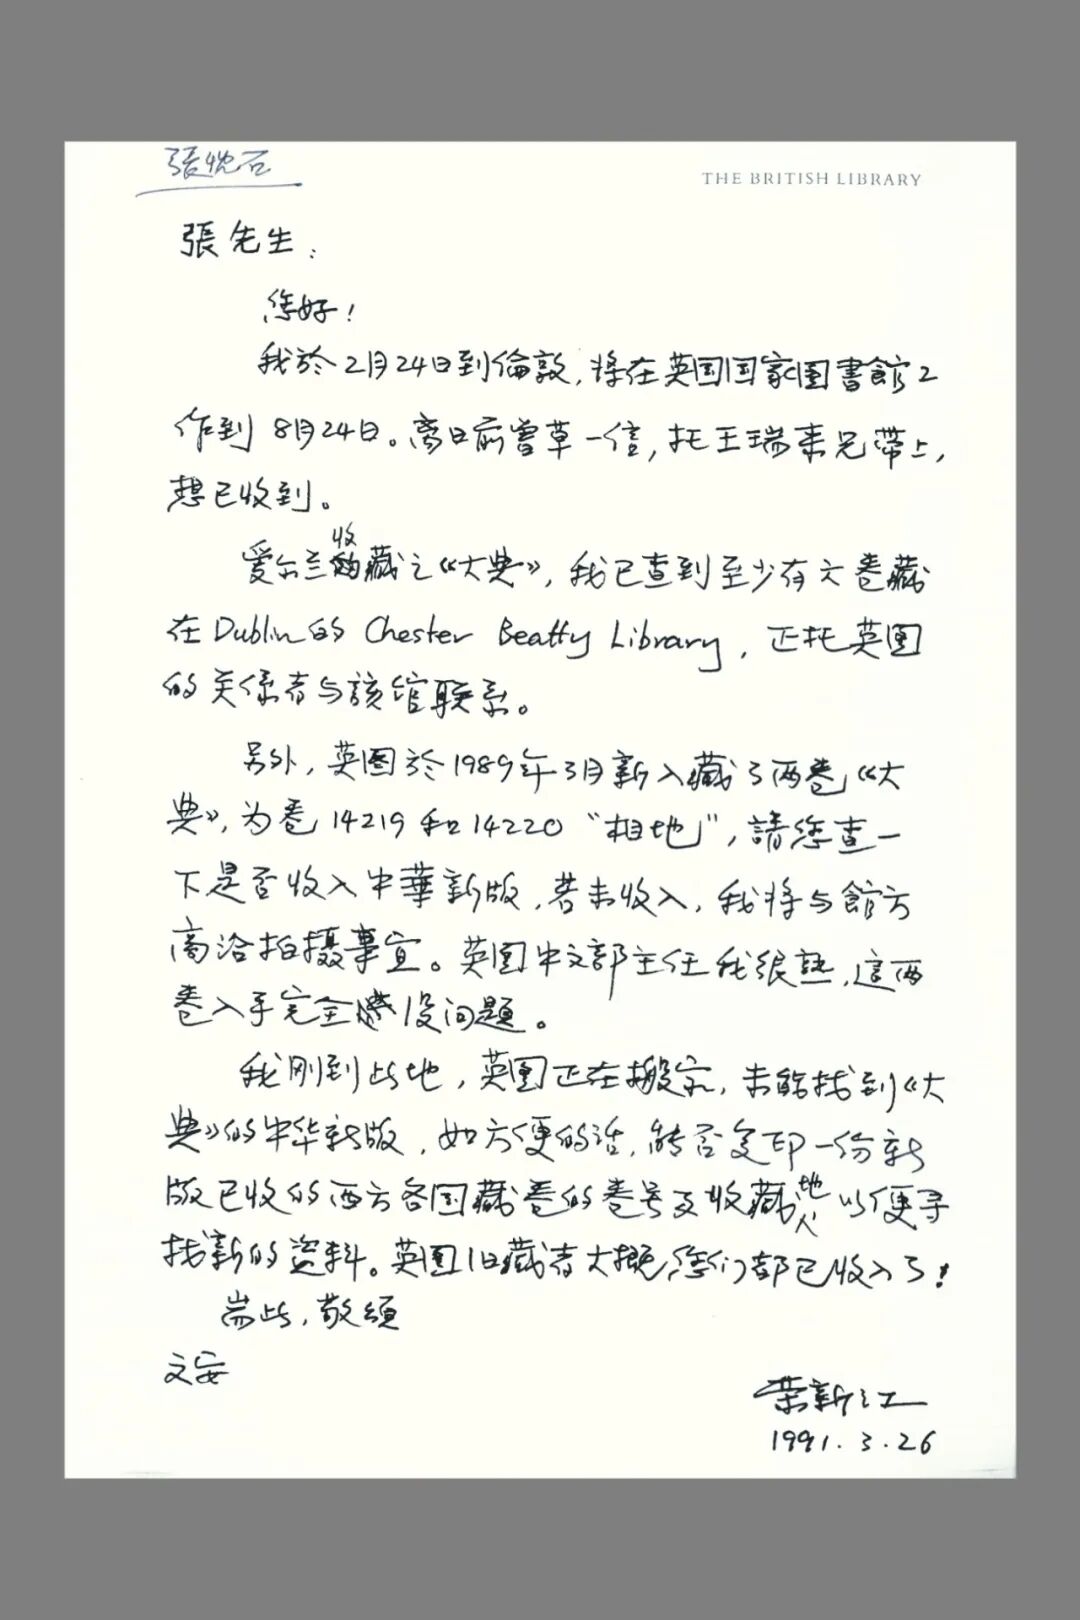 張忱石
THE BRITISH LIBRARY
張先生：
您好！
我於2月24日到倫敦，将在英国国家图書館工
作到8月24日。离日前曾草一信，托王瑞来兄带上，
想已收到。
爱尔兰收藏之《大典》，我已查到至少有六卷藏
在Dublin的 Chester Beatty Library，正托英图
的关係者与該馆联系。
另外，英图於1989年3月新入藏了两卷《大
典》，为卷14219和14220“相地”，請您查一
下是否收入中華新版，若未收入，我将与館方
商洽拍摄事宜。英图中文部主任我很熟，這两
卷入手完全没问题。
我刚到此地，英图正在搬家，未能找到《大
典》的中华新版，如方便的话，能否复印一份新
版已收的西方各国藏卷的卷号及收藏地以便寻
找新的资料。英图旧藏者大概您们都已收入了！
耑此，敬頌
文安
荣新江
1991.3.26